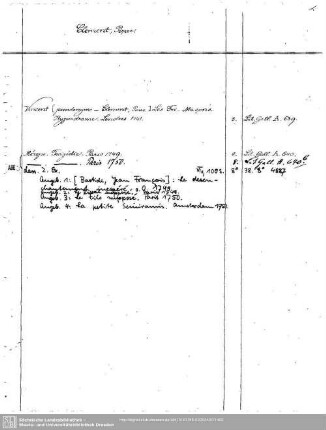 Clément, Pierre
Vincent (pseudonym = Clément, Pierre) Les Fri- Maçons.
Hyperdrame. Londres 1740. 8. Lit. Gall. A.
Mérope. Tragédie. Paris 1749. 8. Lit. Gall. A. 640,
Paris 1750. 8. Lit. Gall. A. 640 6
dass. 2. Ex. 8° 38. 8° 4887
Angeb. 1: [Bastide, Jean François]: le désen-
chantement inespéré. s. l. 1749.
Angeb. 3: le tils supposé. Paris 1750.
Angeb. 4: La petite Sémiramis. Amsterdam
Sächsische Landesbibliothek
Staats- und Universitätsbibliothek Dresden